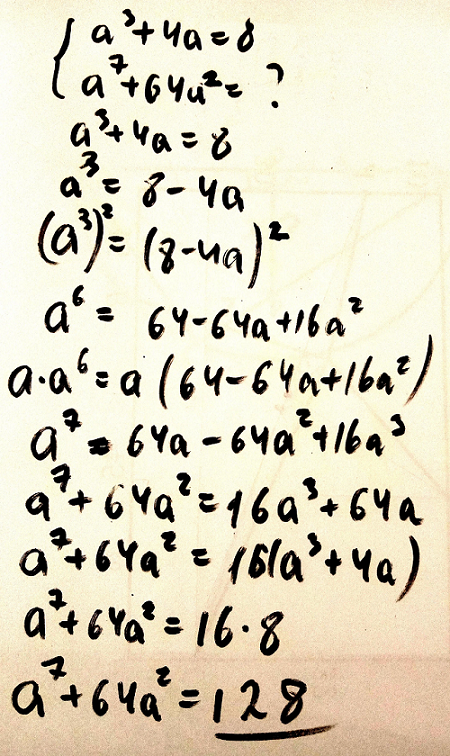 a³+4a=8
a⁷+64a²= ?
a³+4a=8
a³= 8-4a
(a³)²=(8-4a)²
a⁶= 64-64a+16a²
a·a⁶=a(64-64a+16a²)
a⁷=64a-64a²+16a³
a⁷+64a²=16a³+64a
a⁷+64a²=16(a³+4a)
a⁷+64a²=16·8
a⁷+64a²=128